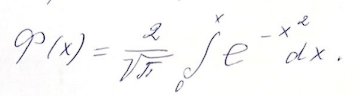 φ(x) = 2/√π ∫₀ˣ e^{-x²} dx.